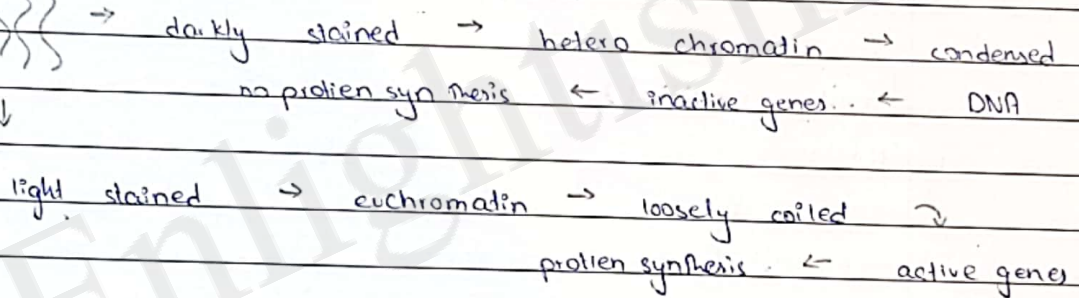 → darkly stained → hetero chromatin → condensed
no protien synthesis ← inactive genes.. ← DNA
↓
light stained → euchromatin → loosely coiled ↷
protien synthesis. ← active genes